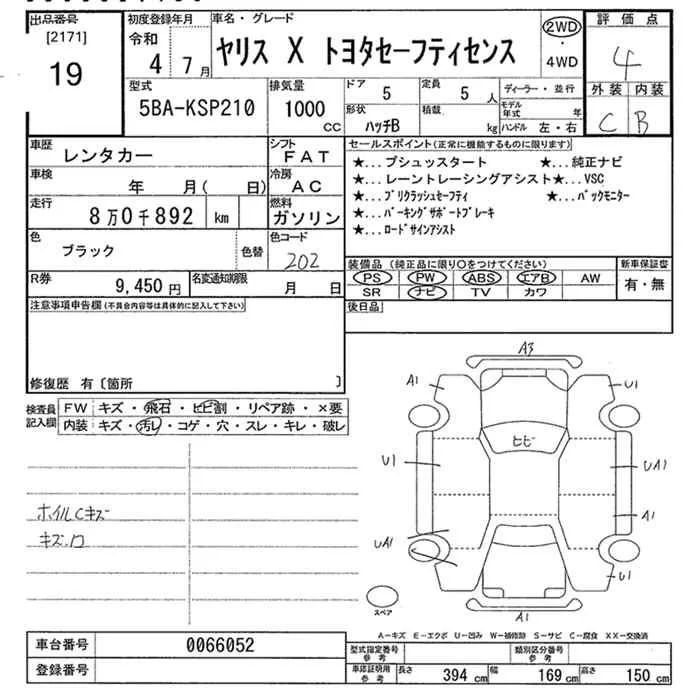 出品番号
[2171]
19
初度登録年月
令和
4 7月
車名・グレード
ヤリス X トヨタセーフティセンス
2WD
・
4WD
評価点
4
外装 内装
C B
型式
5BA-KSP210
排気量
1000
CC
ドア
5
定員
5 人
ディーラー・並行
形状
ハッチB
積載
kg
モデル年式
年
ハンドル 左・右
車歴
レンタカー
シフト
FAT
車検
年 月( 日)
冷房
AC
走行
8万0千892 km
燃料
ガソリン
色
ブラック
色替
色コード
202
R券
9,450円
名変通知期限
月 日
セールスポイント(正常に機能するものに限ります)
★...プシュッスタート ★...純正ナビ
★...レーントレーシングアシスト★...VSC
★...プリクラッシュセーフティ ★...バックモニター
★...パーキングサポートブレーキ
★...ロードサインアシスト
装備品(純正品に限り〇をつけてください)
PS PW ABS エアB AW
SR ナビ TV カワ
新車保証書
有・無
後日品
注意事項申告欄(不具合内容等は具体的に記入して下さい)
修復歴 有〔箇所 〕
検査員
記入欄
FW キズ・飛石・ヒビ割・リペア跡・×要
内装 キズ・汚レ・コゲ・穴・スレ・キレ・破レ
ホイルCキズ
キズ.ロ
A3
A1
U1
ヒビ
U1
UA1
A1
UA1
U1
A1
スペア
A-キズ E-エクボ U-凹み W-補修跡 S-サビ C-腐食 XX-交換済
車台番号 0066052
登録番号
型式指定番号
参考
類別区分番号
参考
車庫証明用
参考
長さ 394 cm 幅 169 cm 高さ 150 cm